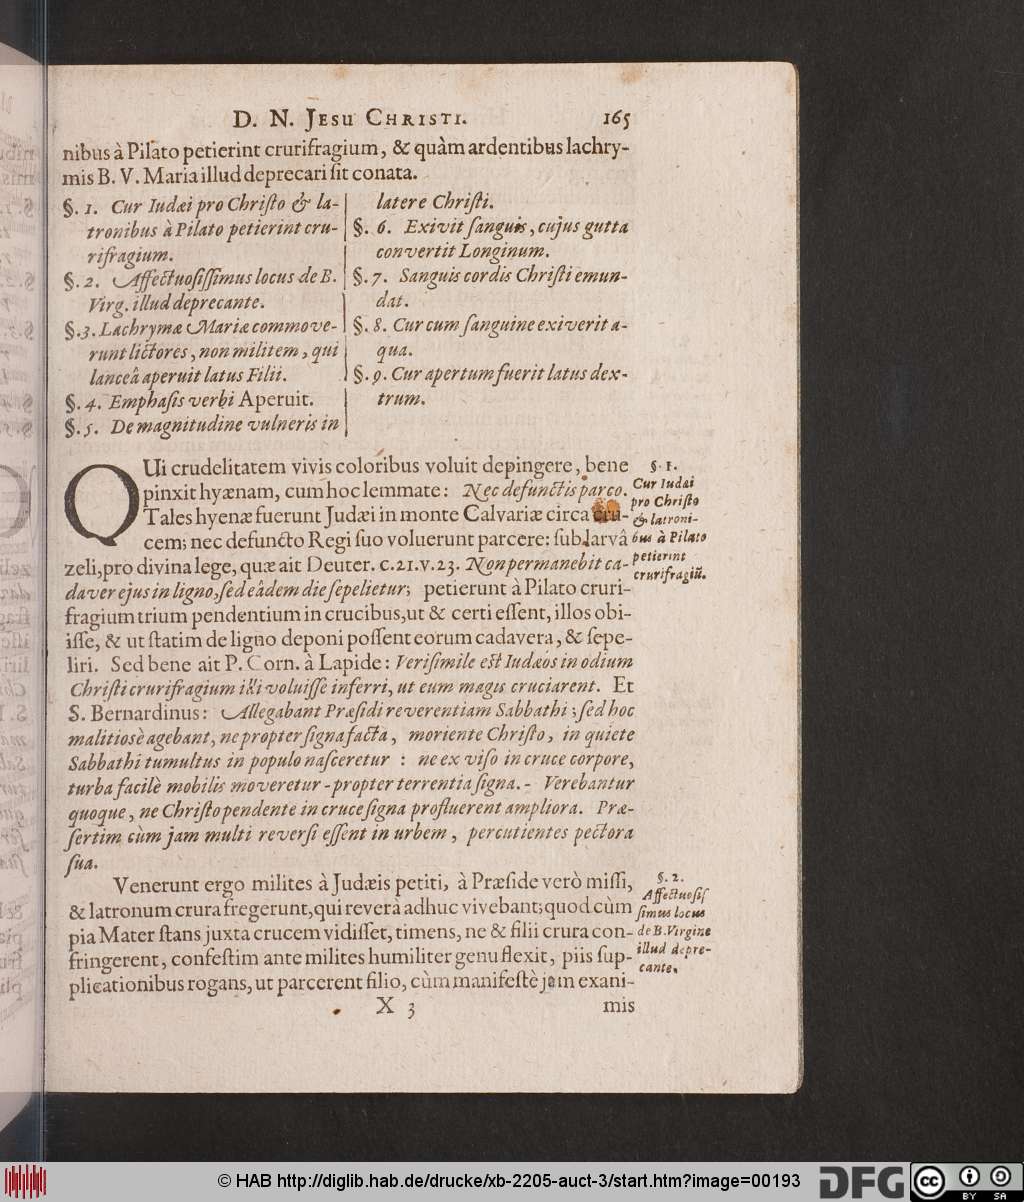 D. N. Jesu Christi. 165
nibus à Pilato petierint crurifragium, & quàm ardentibus lachry-
mis B. V. Maria illud deprecari sit conata.
§. 1. Cur Iudæi pro Christo & la-
tronibus à Pilato petierint cru-
rifragium.
§. 2. Affectuosissimus locus de B.
Virg. illud deprecante.
§. 3. Lachrymæ Mariæ commove-
runt lictores, non militem, qui
lanceâ aperuit latus Filii.
§. 4. Emphasis verbi Aperuit.
§. 5. De magnitudine vulneris in
latere Christi.
§. 6. Exivit sanguis, cujus gutta
convertit Longinum.
§. 7. Sanguis cordis Christi emun-
dat.
§. 8. Cur cum sanguine exiverit a-
qua.
§. 9. Cur apertum fuerit latus dex-
trum.
QUi crudelitatem vivis coloribus voluit depingere, bene
pinxit hyænam, cum hoc lemmate: Nec defunctis parco.
Tales hyenæ fuerunt Judæi in monte Calvariæ circa cru-
cem; nec defuncto Regi suo voluerunt parcere: sub larvâ
zeli, pro divina lege, quæ ait Deuter. c. 21. v. 23. Non permanebit ca-
daver ejus in ligno, sed eâdem die sepelietur; petierunt à Pilato cruri-
fragium trium pendentium in crucibus, ut & certi essent, illos obi-
isse, & ut statim de ligno deponi possent eorum cadavera, & sepe-
liri. Sed bene ait P. Corn. à Lapide: Verisimile est Iudæos in odium
Christi crurifragium illi voluisse inferri, ut eum magis cruciarent. Et
S. Bernardinus: Allegabant Præsidi reverentiam Sabbathi; sed hoc
malitiosè agebant, ne propter signa facta, moriente Christo, in quiete
Sabbathi tumultus in populo nasceretur : ne ex viso in cruce corpore,
turba facilè mobilis moveretur - propter terrentia signa. - Verebantur
quoque, ne Christo pendente in cruce signa profluerent ampliora. Præ-
sertim cùm jam multi reversi essent in urbem, percutientes pectora
sua.
Venerunt ergo milites à Judæis petiti, à Præside verò missi,
& latronum crura fregerunt, qui reverà adhuc vivebant; quod cùm
pia Mater stans juxta crucem vidisset, timens, ne & filii crura con-
fringerent, confestim ante milites humiliter genu flexit, piis sup-
plicationibus rogans, ut parcerent filio, cùm manifestè jam exani-
X 3 mis
§. 1.
Cur Iudæi
pro Christo
& latroni-
bus à Pilato
petierint
crurifragiũ.
§. 2.
Affectuosis
simus locus
de B. Virgine
illud depre-
cante.
© HAB http://diglib.hab.de/drucke/xb-2205-auct-3/start.htm?image=00193
DFG
cc
BY SA